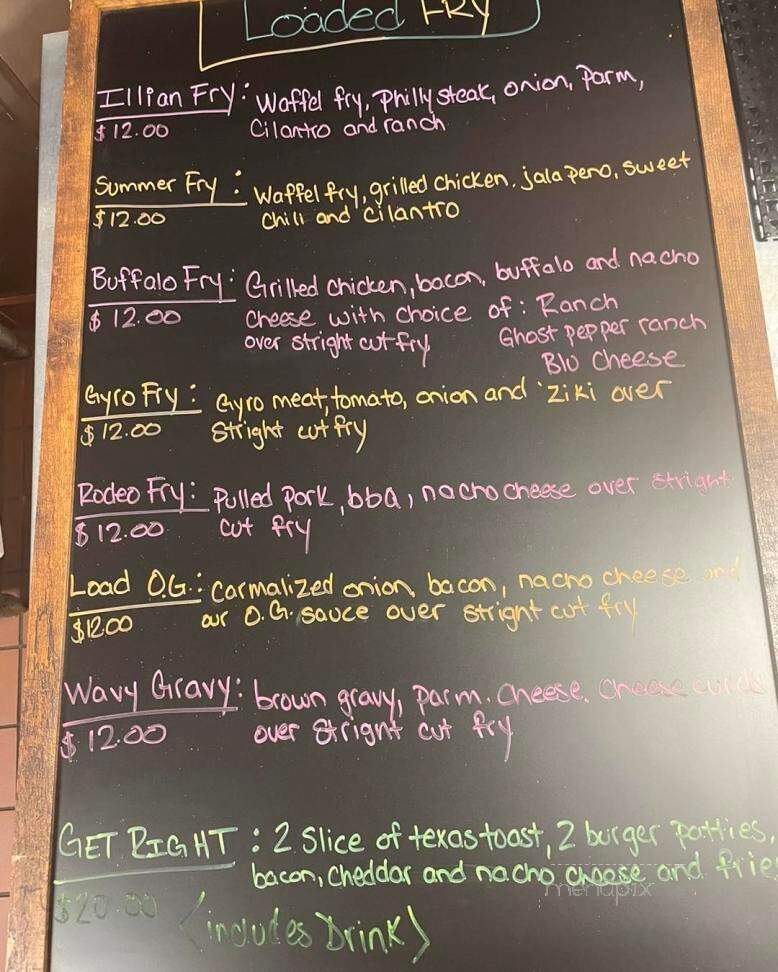 Loaded FRY
Illian Fry: Waffel fry, Philly steak, onion, Parm,
$12.00 Cilantro and ranch
Summer Fry : Waffel fry, grilled chicken, jalapeno, sweet
$12.00 chili and cilantro
Buffalo Fry: Grilled chicken, bacon, buffalo and nacho
$12.00 cheese with choice of: Ranch
over stright cut fry Ghost pepper ranch
Blu Cheese
Gyro Fry: Gyro meat, tomato, onion and 'ziki over
$12.00 stright cut fry
Rodeo Fry: Pulled Pork, bbq, nacho cheese over stright
$12.00 cut fry
Load O.G.: Carmalized onion, bacon, nacho cheese and
$12.00 our O.G. sauce over stright cut fry
Wavy Gravy: brown gravy, parm. cheese, cheese curds
$12.00 over stright cut fry
GET RIGHT : 2 Slice of texas toast, 2 burger patties,
bacon, cheddar and nacho cheese and fries
$20.00 (includes Drink)
menupix